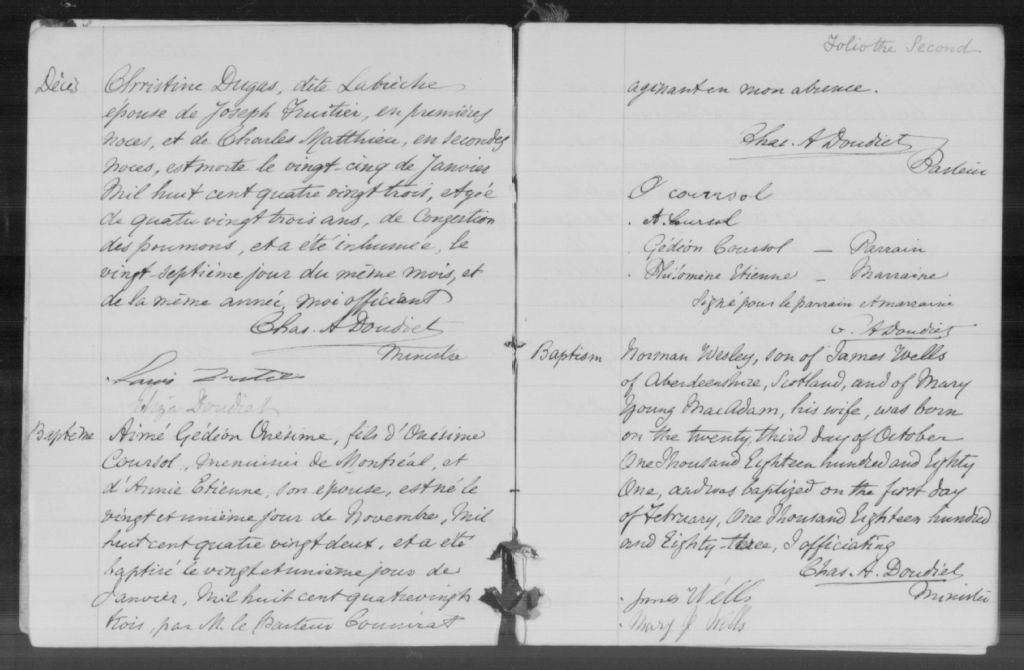 Décès Christine Dugas, dite Labrèche
épouse de Joseph Truitier, en premières
noces, et de Charles Matthieu, en secondes
noces, est morte le vingt-cinq de Janvier
Mil huit cent quatre vingt trois, et âgée
de quatre vingt trois ans, de Congestion
des poumons, et a été inhumée, le
vingt-septième jour du même mois, et
de la même année, moi officiant
Chas. A Doudiet
Ministre
Louis
Eliza Doudiet
Baptême Aimé Gédéon Onésime, fils d'Onésime
Coursol, menuisier de Montréal, et
d'Annie Etienne, son épouse, est né le
vingt et unième jour de Novembre, Mil
huit cent quatre vingt deux, et a été
baptisé le vingt et unième jour de
Janvier, Mil huit cent quatre vingt
trois, par M. le Pasteur
Folio the Second
agissant en mon absence.
Chas. A Doudiet
Pasteur
O coursol
A. Coursol
Gédéon Coursol — Parrain
Philomène Etienne — Marraine
Signé pour le parrain et marraine
C. A Doudiet
Baptism Norman Wesley, son of James Wells
of Aberdeenshire, Scotland, and of Mary
Young MacAdam, his wife, was born
on the twenty third day of October
One Thousand Eighteen hundred and Eighty
One, and was baptized on the first day
of February, One Thousand Eighteen hundred
and Eighty-three, I officiating
Chas. A. Doudiet
Minister
James Wells
Mary Y Wells